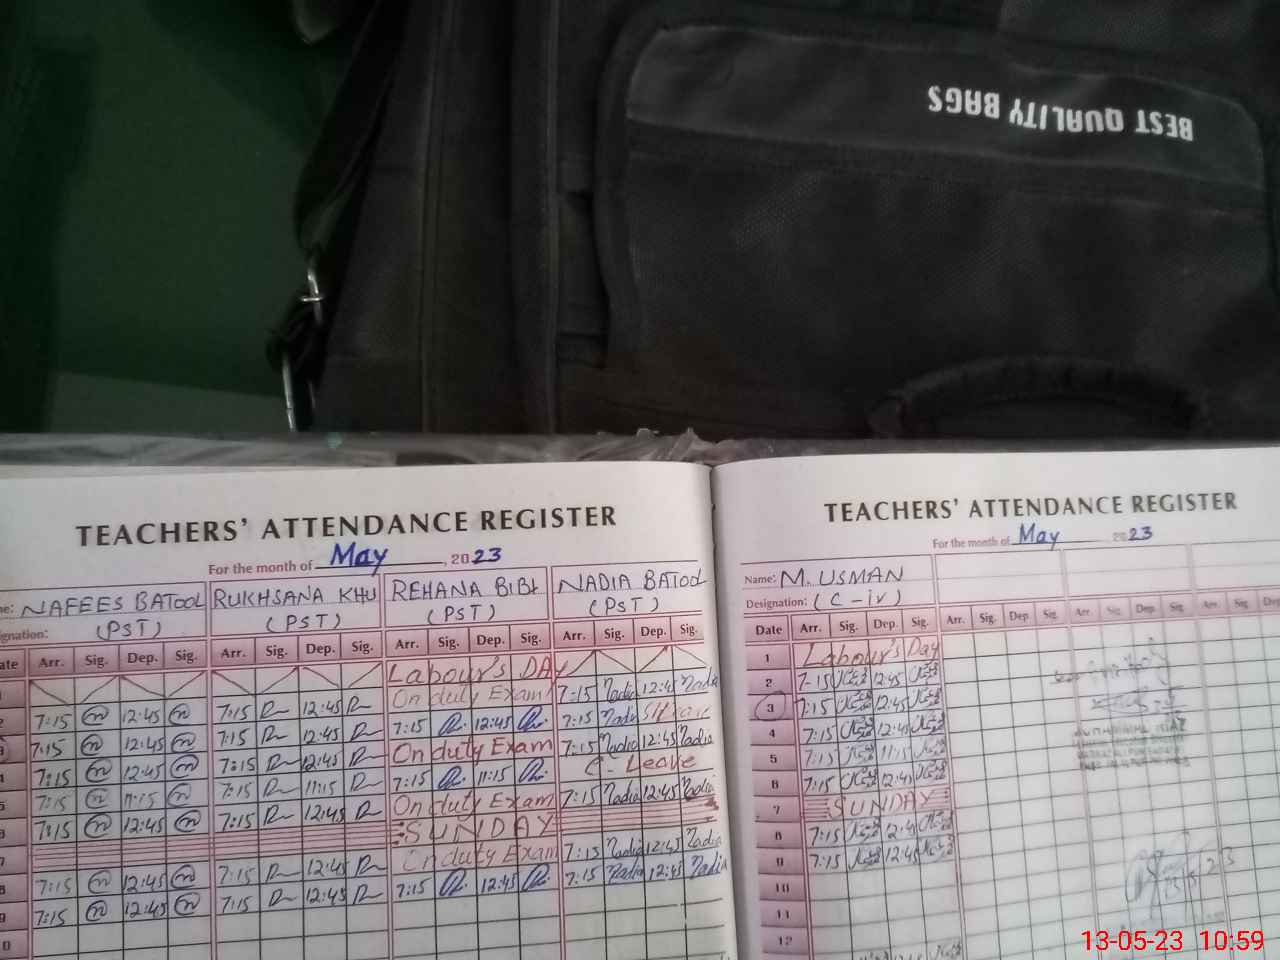 BEST QUALITY BAGS
TEACHERS' ATTENDANCE REGISTER
For the month of May, 2023
NAFEES BATOOL RUKHSANA KHU REHANA BIBI NADIA BATOOL
(PST) (PST) (PST) (PST)
Arr. Sig. Dep. Sig. Arr. Sig. Dep. Sig. Arr. Sig. Dep. Sig. Arr. Sig. Dep. Sig.
Labour's DAY
7:15 12:45 7:15 12:45 On duty Exam 7:15 Nadia 12:45 Nadia
7:15 12:45 7:15 12:45 7:15 12:45 7:15 Nadia
7:15 12:45 7:15 12:45 On duty Exam 7:15 Nadia 12:45 Nadia
7:15 11:15 7:15 11:15 7:15 11:15 C- Leave
7:15 12:45 7:15 12:45 On duty Exam 7:15 Nadia 12:45 Nadia
SUNDAY
7:15 12:45 7:15 12:45 On duty Exam 7:15 Nadia 12:45 Nadia
7:15 12:45 7:15 12:45 7:15 12:45 7:15 Nadia 12:45 Nadia
TEACHERS' ATTENDANCE REGISTER
For the month of May 2023
Name: M. USMAN
Designation: (C-iv)
Date Arr. Sig. Dep. Sig. Arr. Sig. Dep. Sig. Arr. Sig. Dep. Sig. Arr. Sig.
1 Labour's Day
2 7:15 12:45
3 7:15 12:45
4 7:15 12:45
5 7:15 11:15
6 7:15 12:45
7 SUNDAY
8 7:15 12:45
9 7:15 12:45
10
11
12
13-05-23 10:59